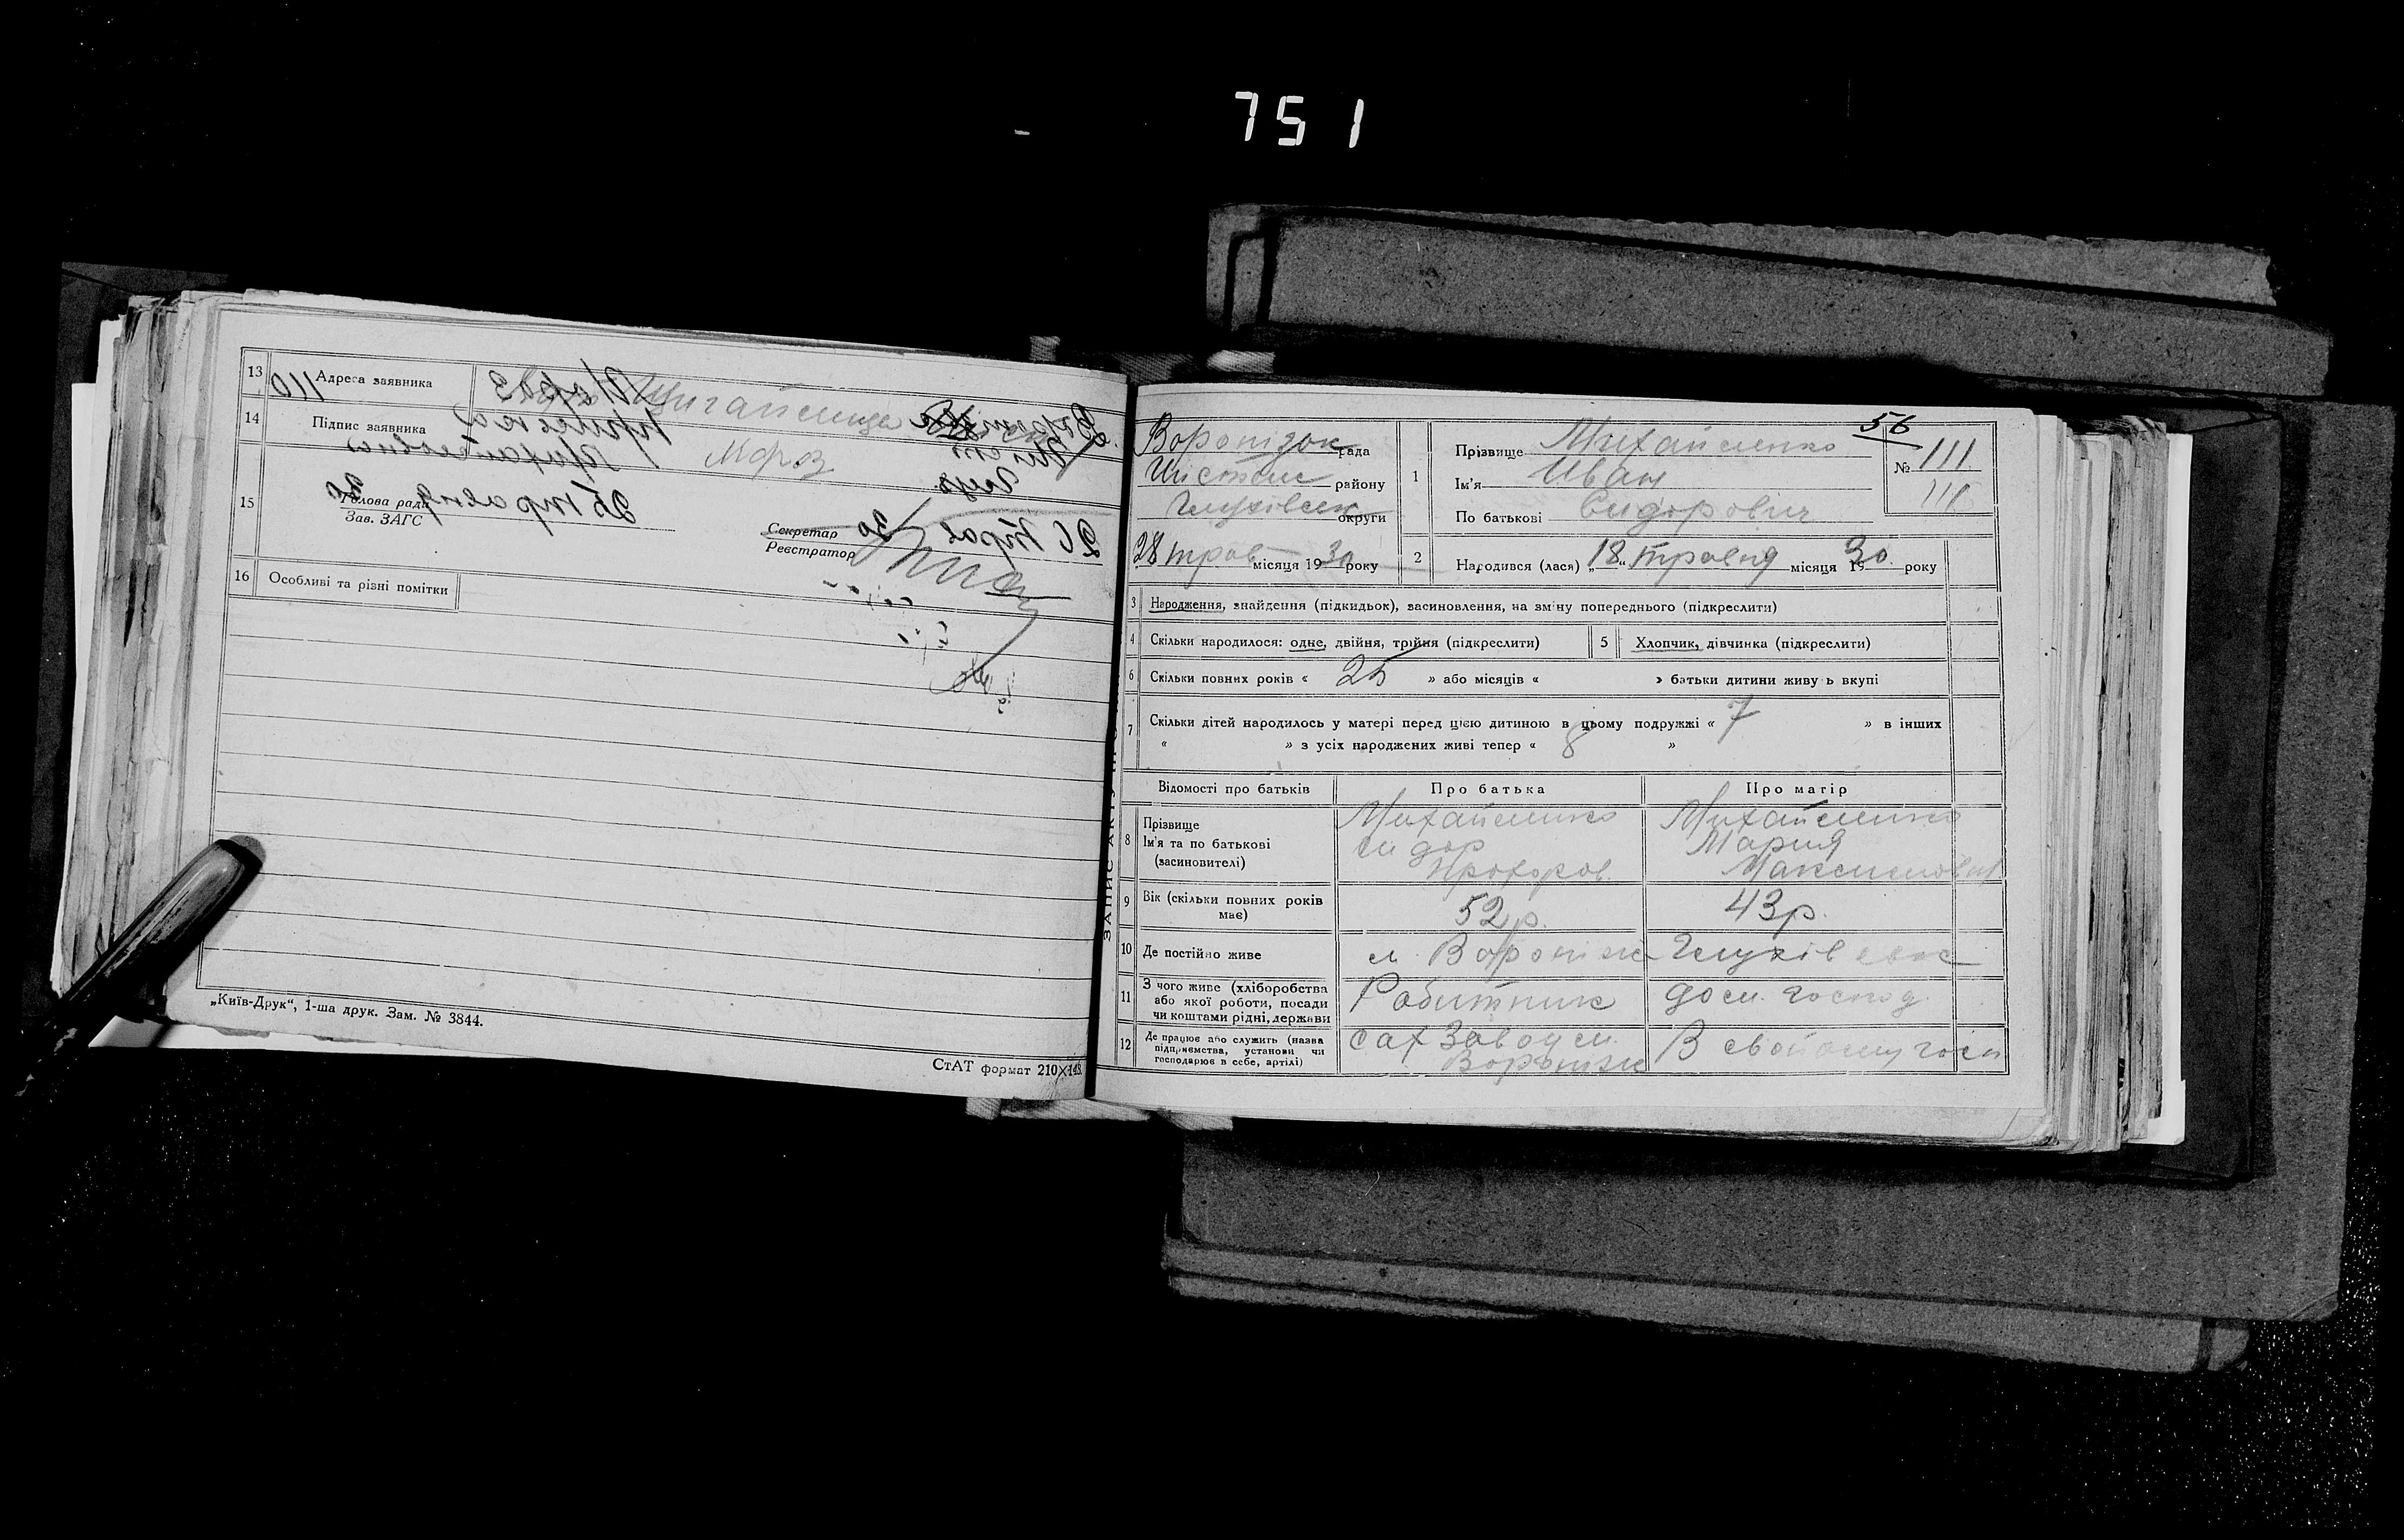 751
13 Адреса заявника
14 Підпис заявника Мороз
15 Голова ради
Зав. ЗАГС
Секретар
Реєстратор
16 Особливі та різні помітки
„Київ-Друк“, 1-ша друк. Зам. № 3844.
СтАТ формат 210×148.
ЗАПИС АКТУ ПРО
56
рада
району
Глухівськ округи
28 трав місяця 1930 року
№ 111
111
1 Прізвище Михайленко
Ім'я Иван
По батькові Сидорович
2 Народився (лася) „18“ травня місяця 1930 року
3 Народження, знайдення (підкидьок), засиновлення, на зміну попереднього (підкреслити)
4 Скільки народилося: одне, двійня, трійня (підкреслити) 5 Хлопчик, дівчинка (підкреслити)
6 Скільки повних років « 25 » або місяців « » батьки дитини живуть вкупі
7 Скільки дітей народилось у матері перед цією дитиною в цьому подружжі « 7 » в інших
« » з усіх народжених живі тепер « 8 »
Відомості про батьків Про батька Про матір
8 Прізвище
Ім'я та по батькові
(засиновителі)
Михайленко
Сидор
Прохоров.
Михайленко
Мария
Максимовна
9 Вік (скільки повних років має) 52 р. 43 р.
10 Де постійно живе м. Вороніж Глухівськ
11 З чого живе (хліборобства
або якої роботи, посади
чи коштами рідні, держави
Робитник
дом. господ.
12 Де працює або служить (назва
підприємства, установи чи
господарює в себе, артілі)
Сахзавод м.
Вороніж
В свойому госп